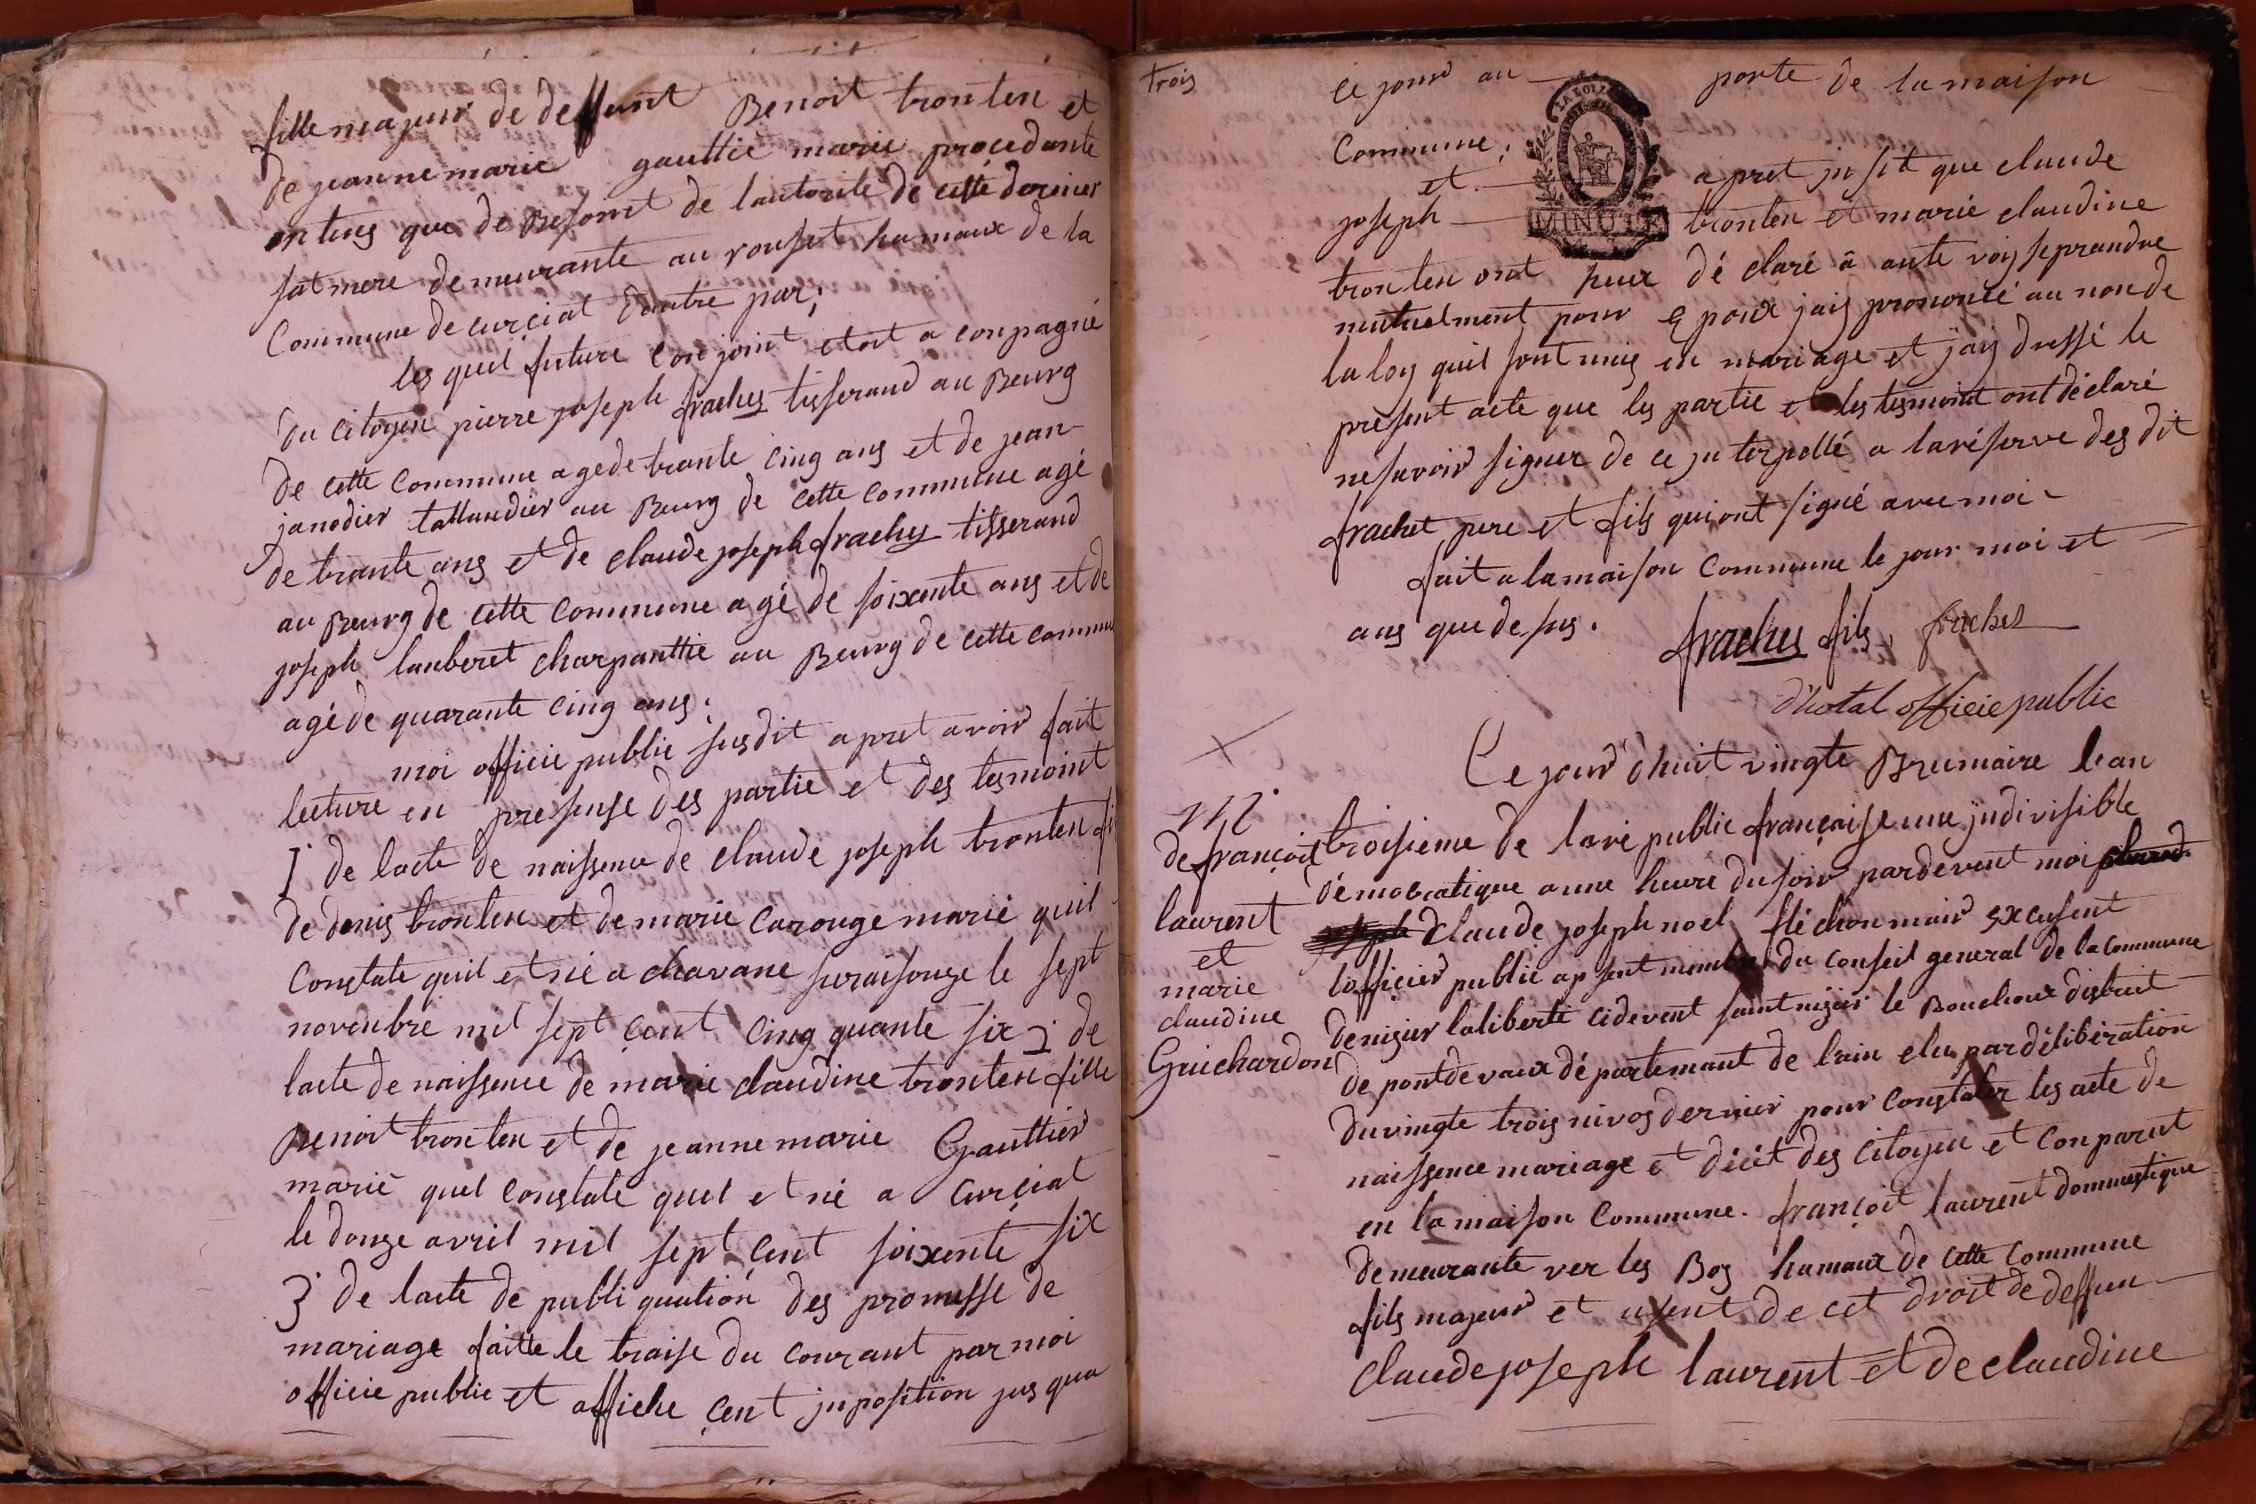 fille majeur de deffunt Benoit tronten et
de jeanne marie gauttié marie procedante
en tens que de Besoint de lautorité de cette dernier
sat mere demeurante au rousset hamaux de la
Commune de curciat dautre par;
les quel future conjoint etoit a conpagné
du citoyen pierre joseph frachet tisserand au Beurg
de cette commune agé de trante cinq ans et de jean
janodier taillandier au Beurg de cette commune agé
de trante ans et de claude joseph frachet tisserand
au Beurg de cette commune agé de soixente ans et de
joseph lanberet charpanttié au Beurg de cette commu
agé de quarante cinq ans.
moi officié public susdit apret avoir fait
lecture en presense des partie et des tesmoint
1° de lacte de naissence de claude joseph tronten fi
de denis tronten et de marie carouge marié quil
constate quil et né a chavane suraisouze le sept
novenbre mil sept cent cinq quante six 2 de
lacte de naissence de marie claudine tronten fille
Benoit tronten et de jeanne marie Gauttier
marié quel constate quel et né a curciat
le douze avril mil sept cent soixente six
3° de lacte de publi quation des promesse de
mariage faitte le traise du courant par moi
officié public et affiche cent jnposition jus qua
trois
ce jour au porte de la maison
Commune;
et apret jnsit que claude
joseph tronten et marie claudine
LA LOI
MINUTE
tronten ont heux dé claré â aute voix se prandre
mutuelment pour epoux jais prononcé au non de
la loy quil sont unis en mariage et jais dressé le
present acte que les partie et les tesmoint ont déclaré
ne savoir signer de ce jnterpellé a la réserve des dit
frachet pere et fils qui ont signé avec moi
fait a la maison commune le jour moi et
ans que desus.
frachet fils, frachet
d'hotal officié public
Ce jour d'huit vingte Brumaire lan
troisieme de la ré public française une jndivisible
démocratique a une heure du soir pardevent moi
claude joseph noel fléchon maire excusent
lofficier public apsent membre du conseil general de la commune
de nizier laliberté cidevent saint nizier le Bouchoux district
de pontdevaux département de lain elu par délibération
du vingte trois nivos dernier pour constater les acte de
naissence mariage et décet des citoyen et conparut
en la maison commune. françoit laurent dommestique
demeurante ver les Boy hamaux de cette commune
fils majeur et usent de cet droit de deffun
claude joseph laurent et de claudine
de françoit
laurent
et
marie
claudine
Guichardon